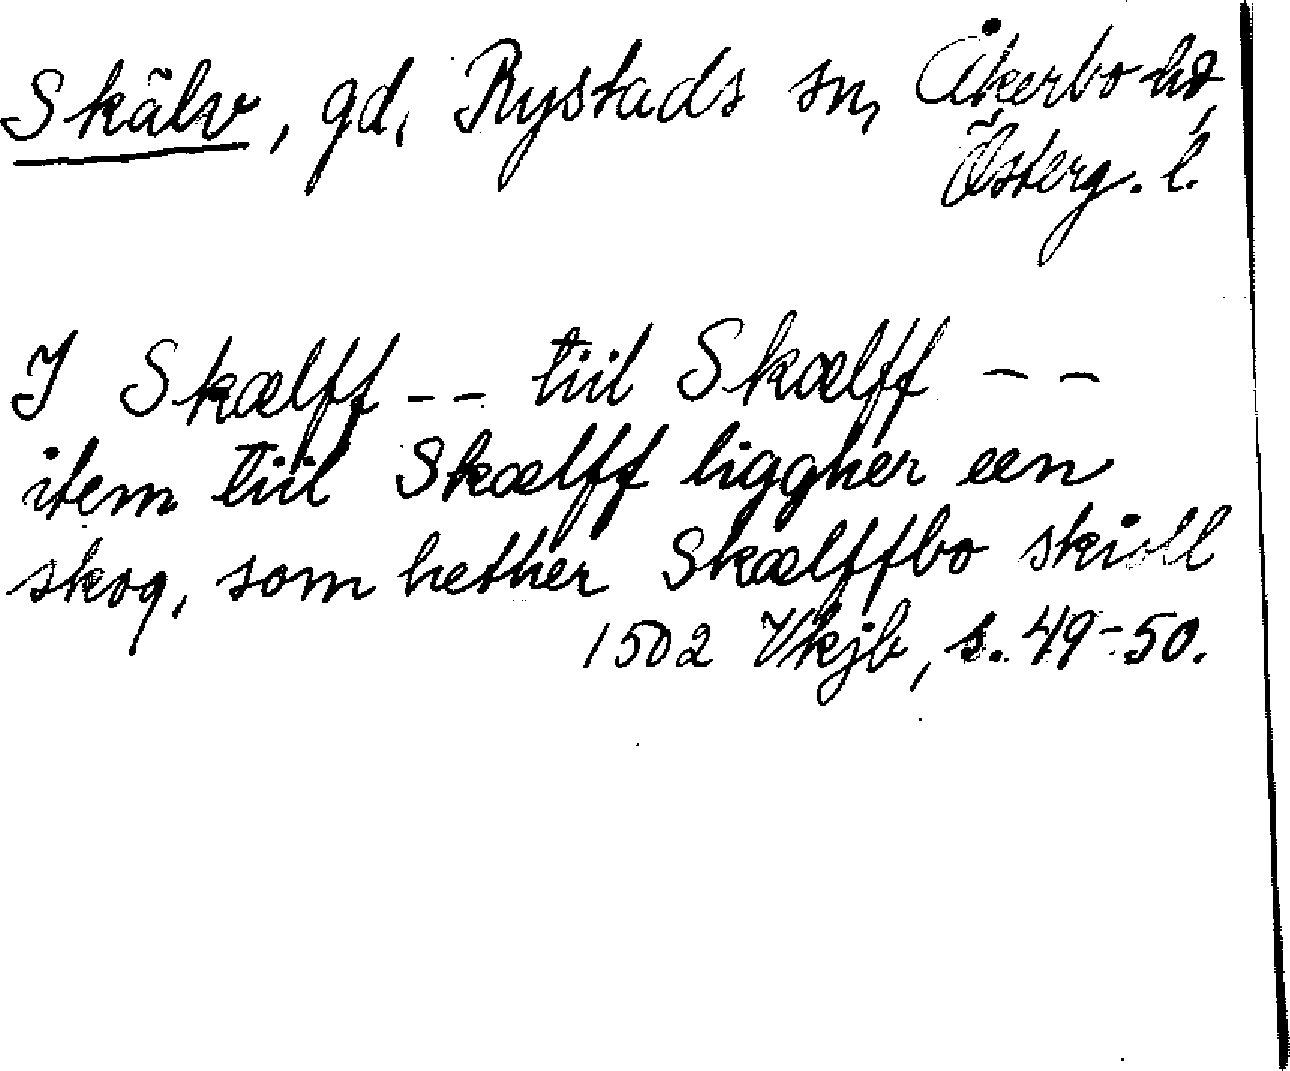 Skälv, gd, Rystads sn, Åkerbo hd,
Österg. l.
I Skælff -- tiil Skælff --
item tiil Skælff liggher een
skog, som hether Skælffbo skioll
1502 Vkjb, s. 49-50.